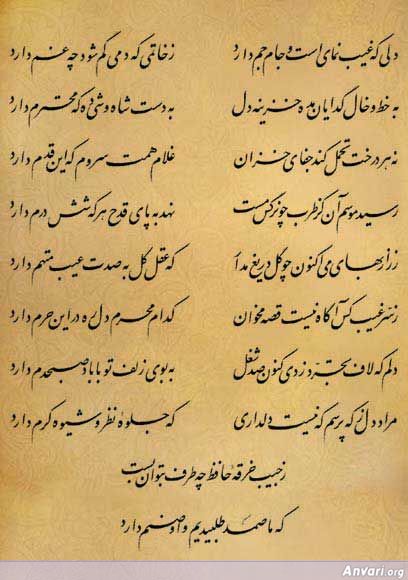 دلی که غیب نمای است و جام جم دارد ز خاتمی که دمی گم شود چه غم دارد
به خط و خال گدایان مده خزینه دل به دست شاه وشی ده که محترم دارد
نه هر درخت تحمل کند جفای خزان غلام همت سروم که این قدم دارد
رسید موسم آن کز طرب چو نرگس مست نهد به پای قدح هر که شش درم دارد
زر از بهای می اکنون چو گل دریغ مدار که عقل کل به صدت عیب متهم دارد
ز سر غیب کس آگاه نیست قصه مخوان کدام محرم دل ره در این حرم دارد
دلم که لاف تجرد زدی کنون صد شغل به بوی زلف تو با باد صبحدم دارد
مراد دل ز که پرسم که نیست دلداری که جلوه نظر و شیوه کرم دارد
ز جیب خرقه حافظ چه طرف بتوان بست
که ما صمد طلبیدیم و او صنم دارد
Anvari.org